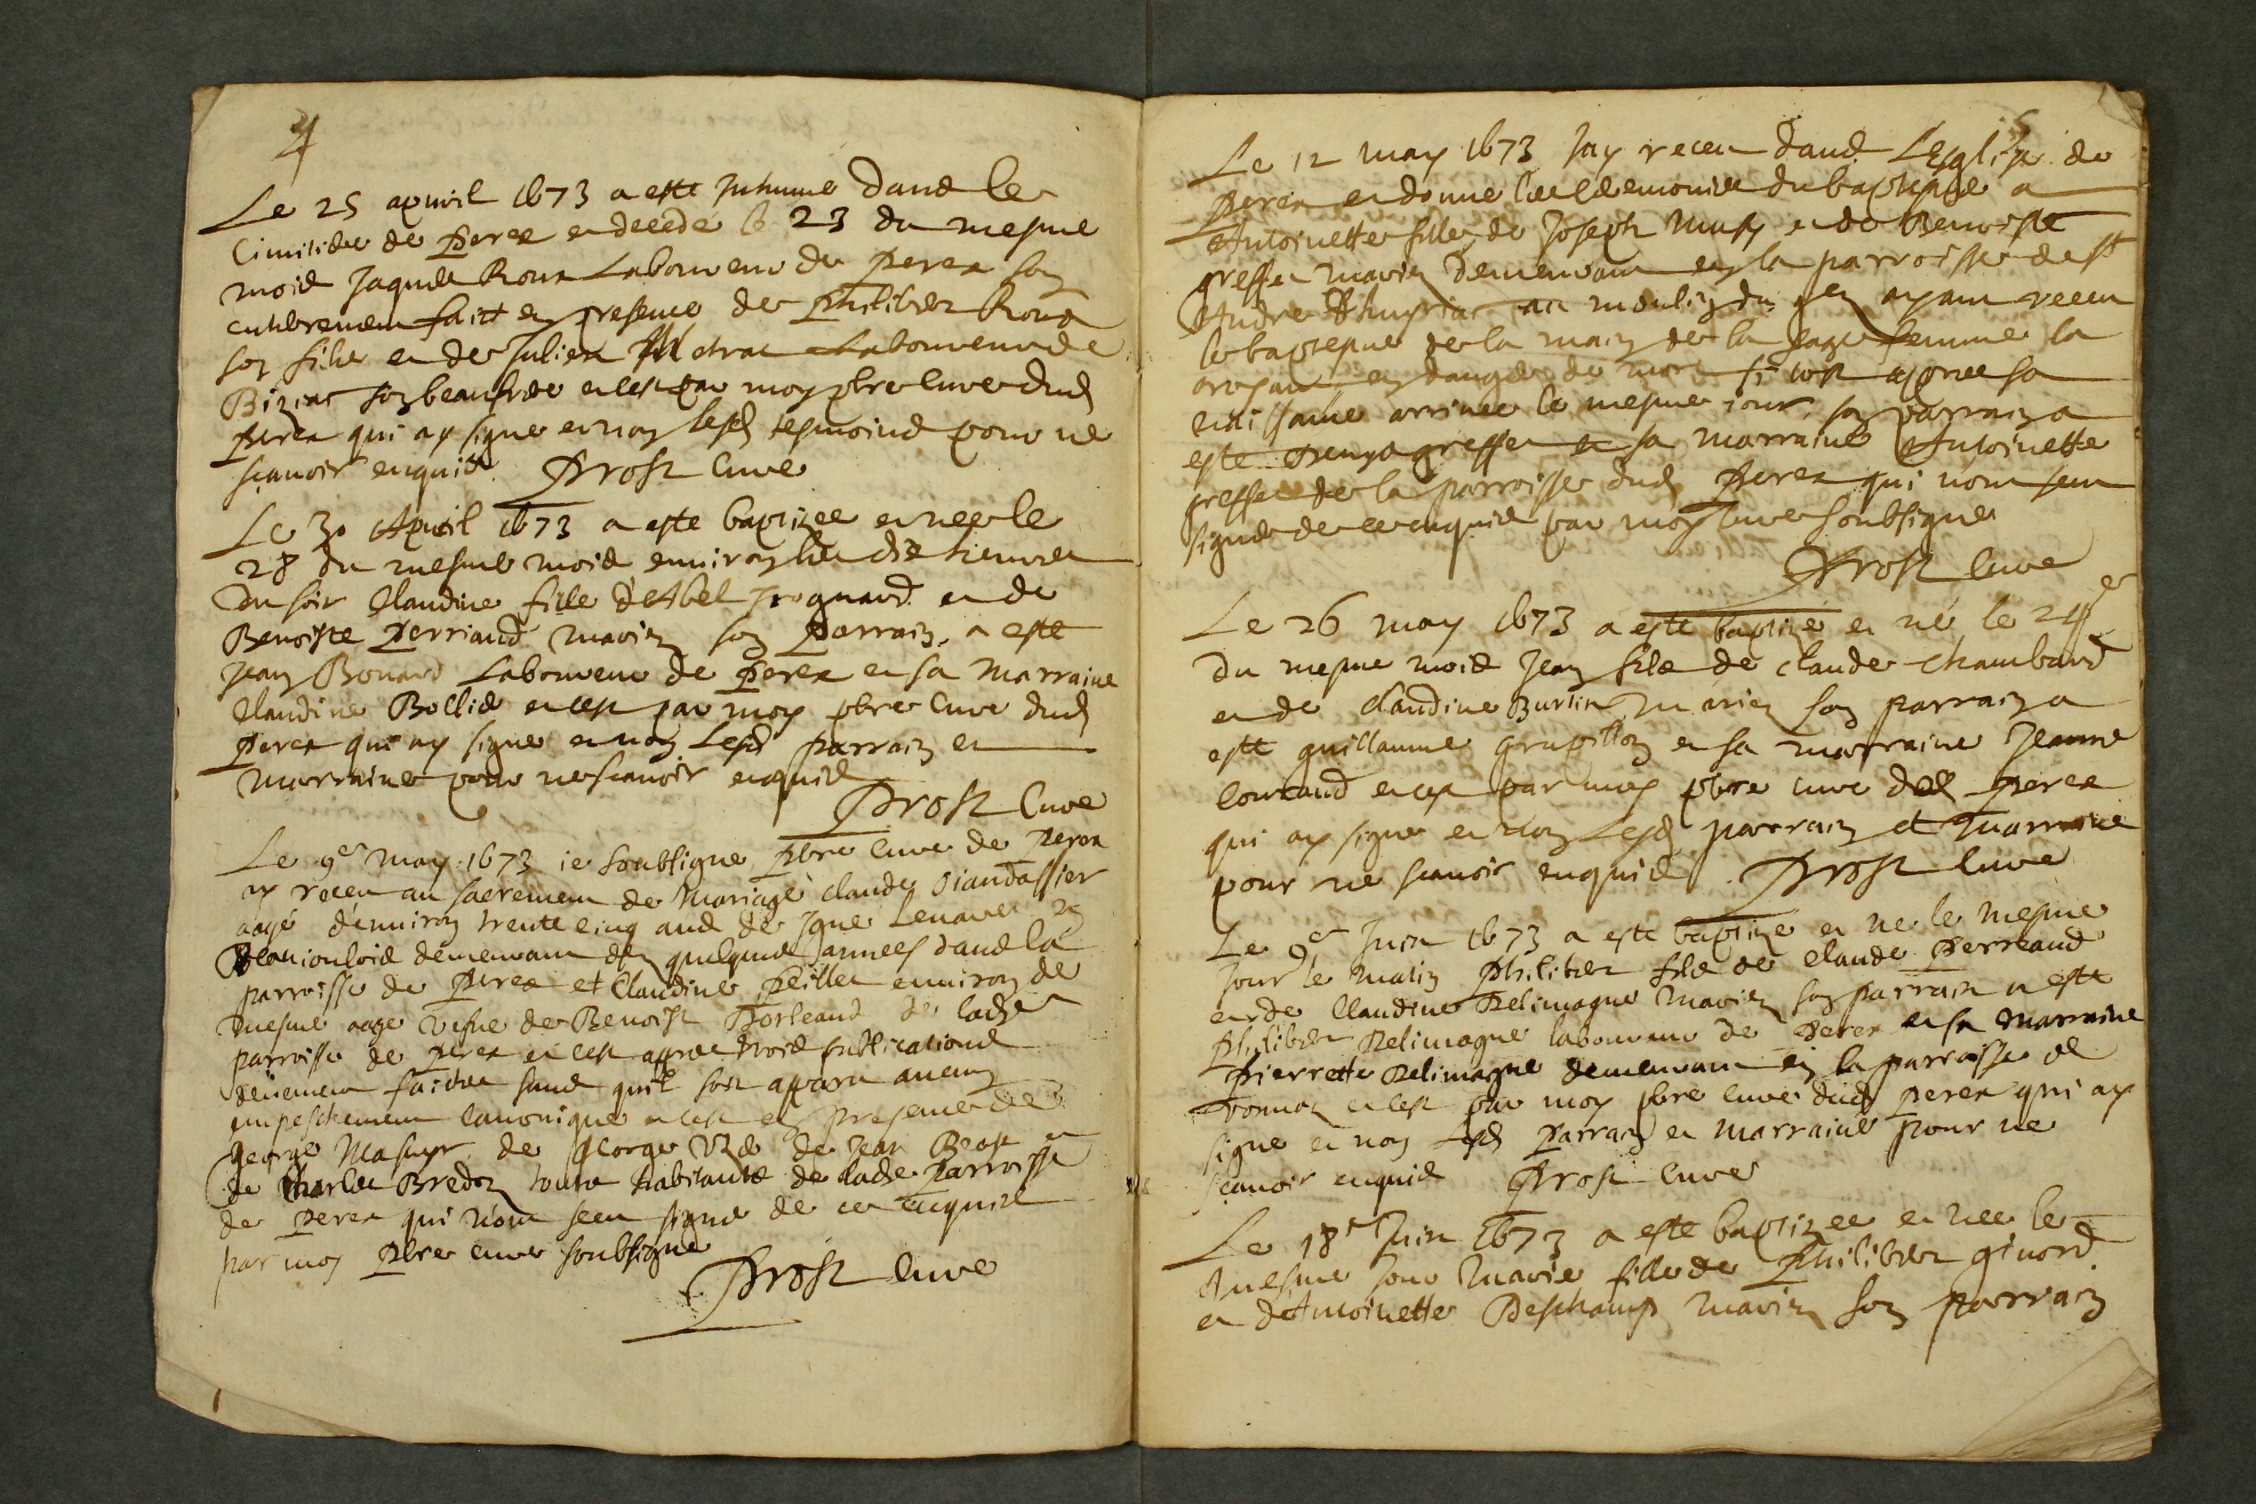 4
Le 25 apvril 1673 a este Inhumé dans le
Cimitiere de Perex et decedé le 23 du mesme
mois Jaques Roux Laboureur de Perex son
enterrement faict en presence de Philibert Roux
son fils et de Julien Laboureur de
son beaufrere et cest par moy pbre Curé dud
Perex qui ay signé et non lesd tesmoins pour ne
sçavoir enquis Prost Curé
Le 30 Apvril 1673 a este baptizee et nee le
28 du mesme mois environ les dix heures
du soir Claudine fille d'Abel et de
Benoiste Perriaud mariez son Parrain a este
Jean Bonard Laboureur de Perex et sa Marraine
Claudine Bollie et cest par moy pbre Curé dud
Perex qui ay signé et non Lesd Parrain et
Marraine pour ne scavoir enquis
Prost Curé
Le 9e May 1673 ie soubsigné Pbre Curé de Perex
ay receu au sacrement de Mariage Claude
aagé d'environ trente cinq ans de en
Beauiolois demeurant dez quelques annees dans la
parroisse de Perex et Claudine Peillet environ de
mesme aage vefve de Benoist de lade
parroisse de Perex et cest apprès trois publications
deüement faictes sans quil soit apparu aucun
empeschement canonique et cest en presence de
George Masuyr de George de Jean Beost et
de Charles Bredon touts habitants de lade Parroisse
de Perex qui n'ont sceu signer de ce enquis
par moy Pbre Curé soubsigné
Prost Curé
5
Le 12 may 1673 Jay receu dans Lesglise de
Perex et donné les ceremonies du baptesme a
Antoinette fille de Joseph Musy et de Benoiste
greffet mariez demeurant en la parroisse de St
André d'huyriat au moulin du ayant receu
le baptesme de la main de la sage femme la
croyant en danger de mort si tost apres sa
naissance arrivée le mesme iour, son parrain a
este Denys greffet et sa marraine Antoinette
greffet de la parroisse dud Perex qui n'ont sceu
signer de ce enquis par moy Curé soubsigné
Prost Curé
Le 26 may 1673 a este baptizé et né le 24e
du mesme mois Jean fils de Claude Chambard
et de Claudine Burtin mariez son parrain a
este guillaume grupillon et sa marraine Jeanne
Contaud et cest par moy pbre curé dud Perex
qui ay signé et non Lesd parrain et marraine
pour ne scavoir enquis Prost Curé
Le 9e Juin 1673 a este baptizé et né le mesme
Jour le matin Philibert fils de Claude Perreaud
et de Claudine Pelimagne mariez son parrain a este
Philibert Pelimagne laboureur de Perex et sa marraine
Pierrette Pelimagne demeurant en la parroisse de
Vonnaz et cest par moy pbre curé dud Perex qui ay
signé et non Lesd Parrain et marraine pour ne
sçavoir enquis Prost Curé
Le 18e Juin 1673 a este baptizee et nee le
mesme jour Marie fille de Philibert givord
et d'Antoinette Deschamps mariez son parrain